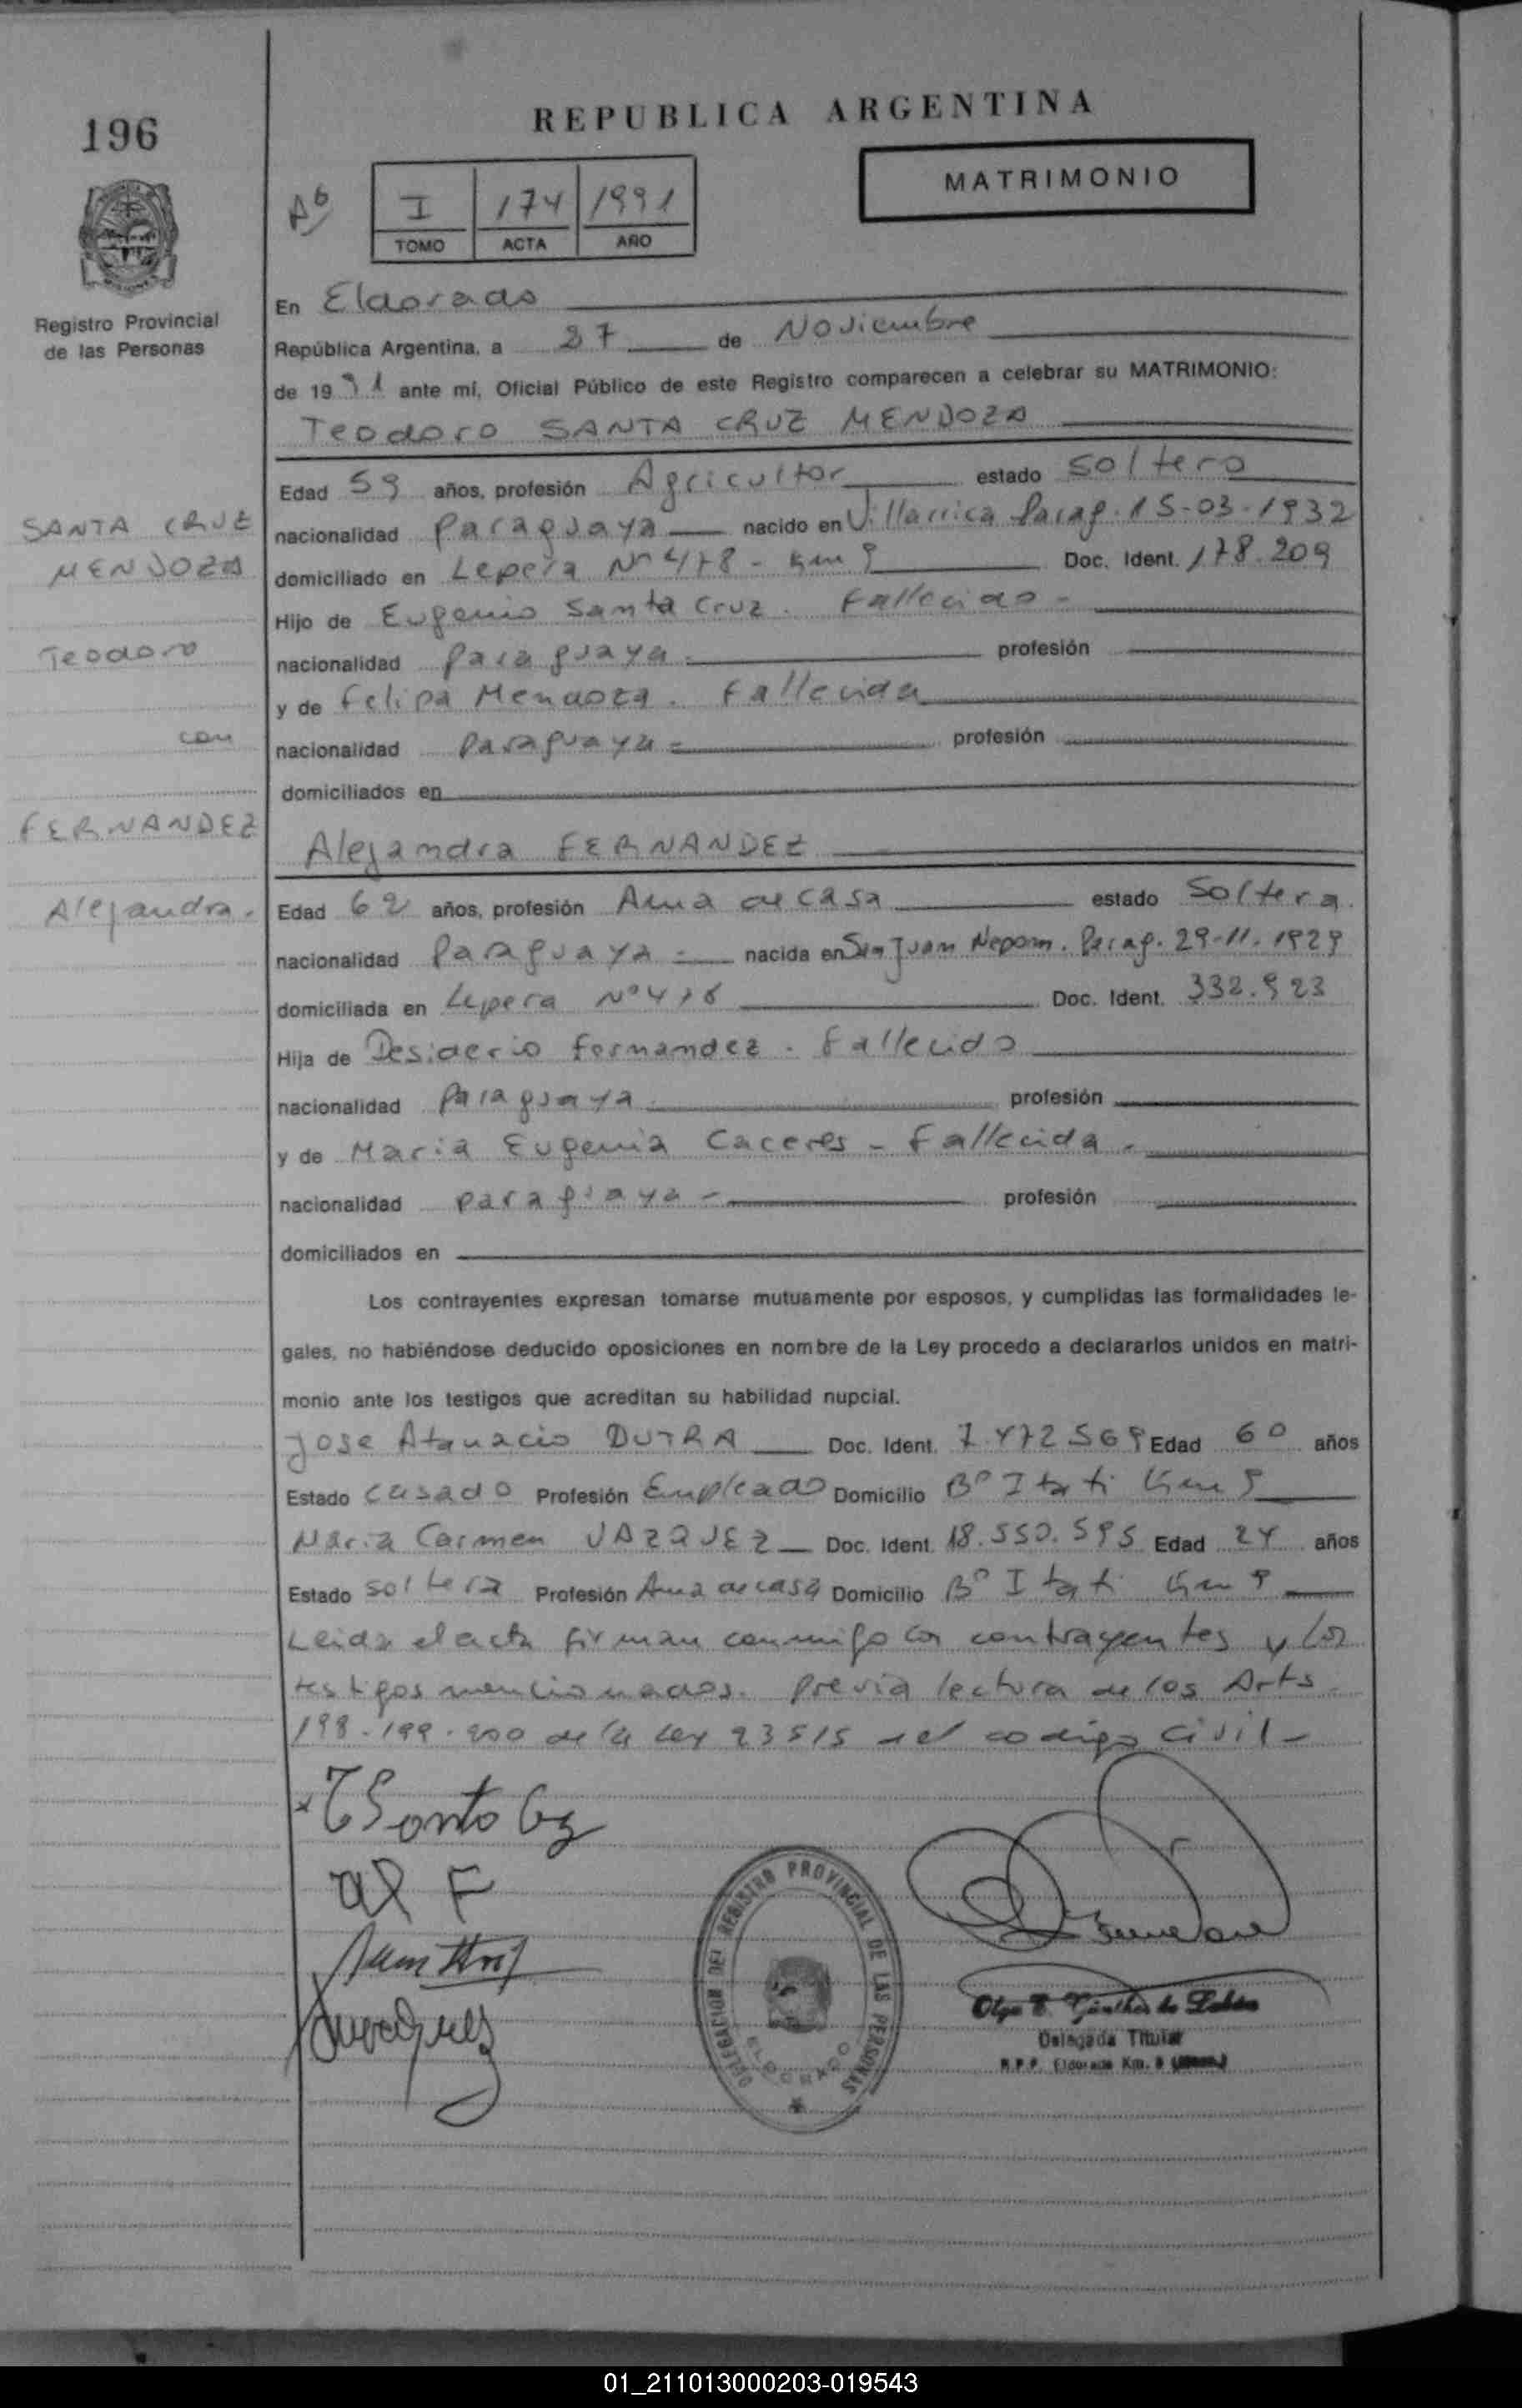 REPUBLICA ARGENTINA
196
MATRIMONIO
Aº
I 174 1991
TOMO ACTA AÑO
Registro Provincial
de las Personas
En Eldorado
República Argentina, a 27 de Noviembre
de 1991 ante mí, Oficial Público de este Registro comparecen a celebrar su MATRIMONIO:
Teodoro SANTA CRUZ MENDOZA
Edad 59 años, profesión Agricultor estado soltero
nacionalidad Paraguaya nacido en Villarrica Parag. 15-03-1932
domiciliado en Lepera Nº 478 - Km 9 Doc. Ident. 178.209
Hijo de Eugenio Santa Cruz. Fallecido -
nacionalidad Paraguaya. profesión
y de Felipa Mendoza. Fallecida
nacionalidad Paraguaya = profesión
domiciliados en
SANTA CRUZ
MENDOZA
Teodoro
con
FERNANDEZ
Alejandra.
Alejandra FERNANDEZ
Edad 62 años, profesión Ama de casa estado Soltera.
nacionalidad Paraguaya = nacida en San Juan Nepom. Parag. 29-11-1929
domiciliada en Lepera Nº 478 Doc. Ident. 332.923
Hija de Desiderio Fernandez. Fallecido
nacionalidad Paraguaya. profesión
y de Maria Eugenia Caceres - Fallecida.
nacionalidad paraguaya - profesión
domiciliados en
Los contrayentes expresan tomarse mutuamente por esposos, y cumplidas las formalidades le-
gales, no habiéndose deducido oposiciones en nombre de la Ley procedo a declararlos unidos en matri-
monio ante los testigos que acreditan su habilidad nupcial.
Jose Atanacio DUTRA Doc. Ident. 7.472569 Edad 60 años
Estado casado Profesión Empleado Domicilio Bº Itati Km 9
Maria Carmen VAZQUEZ Doc. Ident. 18.550.595 Edad 24 años
Estado soltera Profesión Ama de casa Domicilio Bº Itati Km 9
Leida el acta firman conmigo los contrayentes y los
testigos mencionados. Previa lectura de los Arts.
198-199-200 de la Ley 23515 del codigo Civil -
x T Santa Cz
al F
DELEGACION DEL REGISTRO PROVINCIAL DE LAS PERSONAS
ELDORADO
Delegada Titular
R.P.P. Eldorado Km. 9
01_211013000203-019543